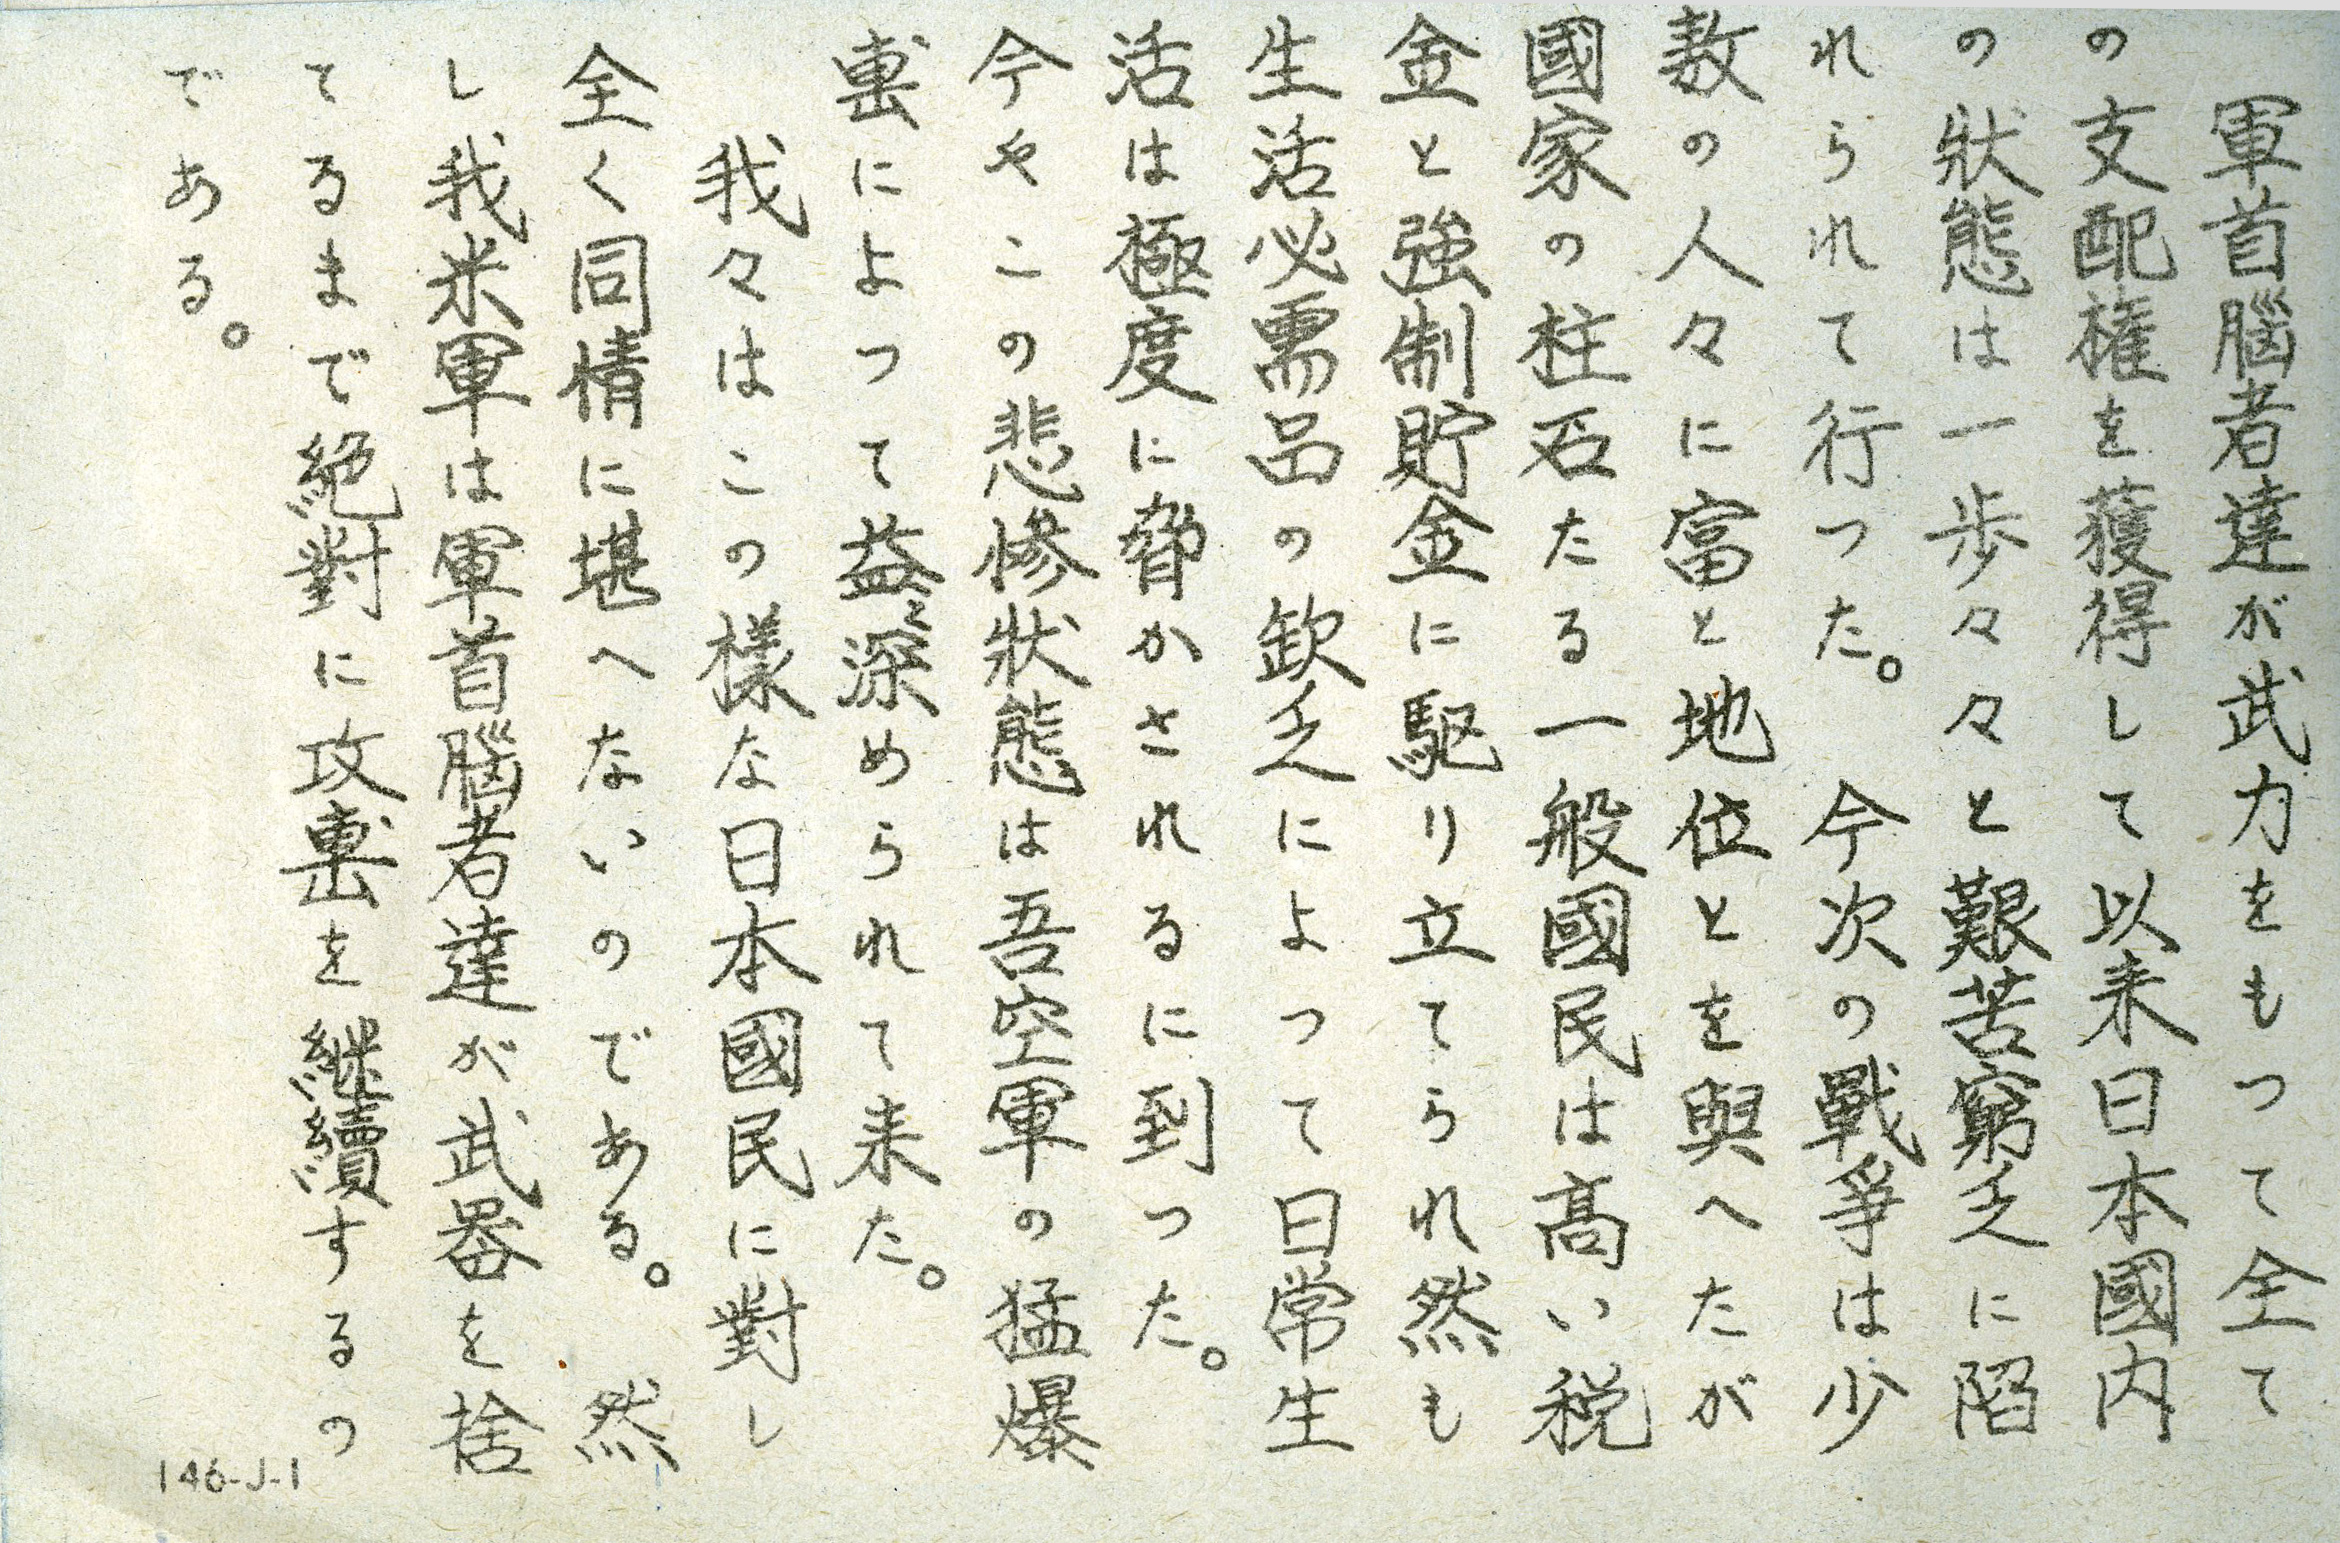 軍首腦者達が武力をもつて全て
の支配權を獲得して以来日本國内
の狀態は一歩々々と艱苦窮乏に陷
れられて行つた。　今次の戰爭は少
数の人々に富と地位とを與へたが
國家の柱石たる一般國民は高い税
金と強制貯金に駆り立てられ然も
生活必需品の欽乏によつて日常生
活は極度に脅かされるに到つた。
今やこの悲惨狀態は吾空軍の猛爆
擊によつて益々深められて来た。
我々はこの様な日本國民に對し
全く同情に堪へないのである。　然
し我米軍は軍首腦者達が武器を捨
てるまで絶對に攻擊を継續するの
である。
146-J-1